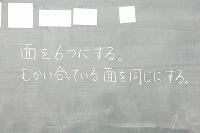 面を6つにする。
むかい合っている面を同じにする。